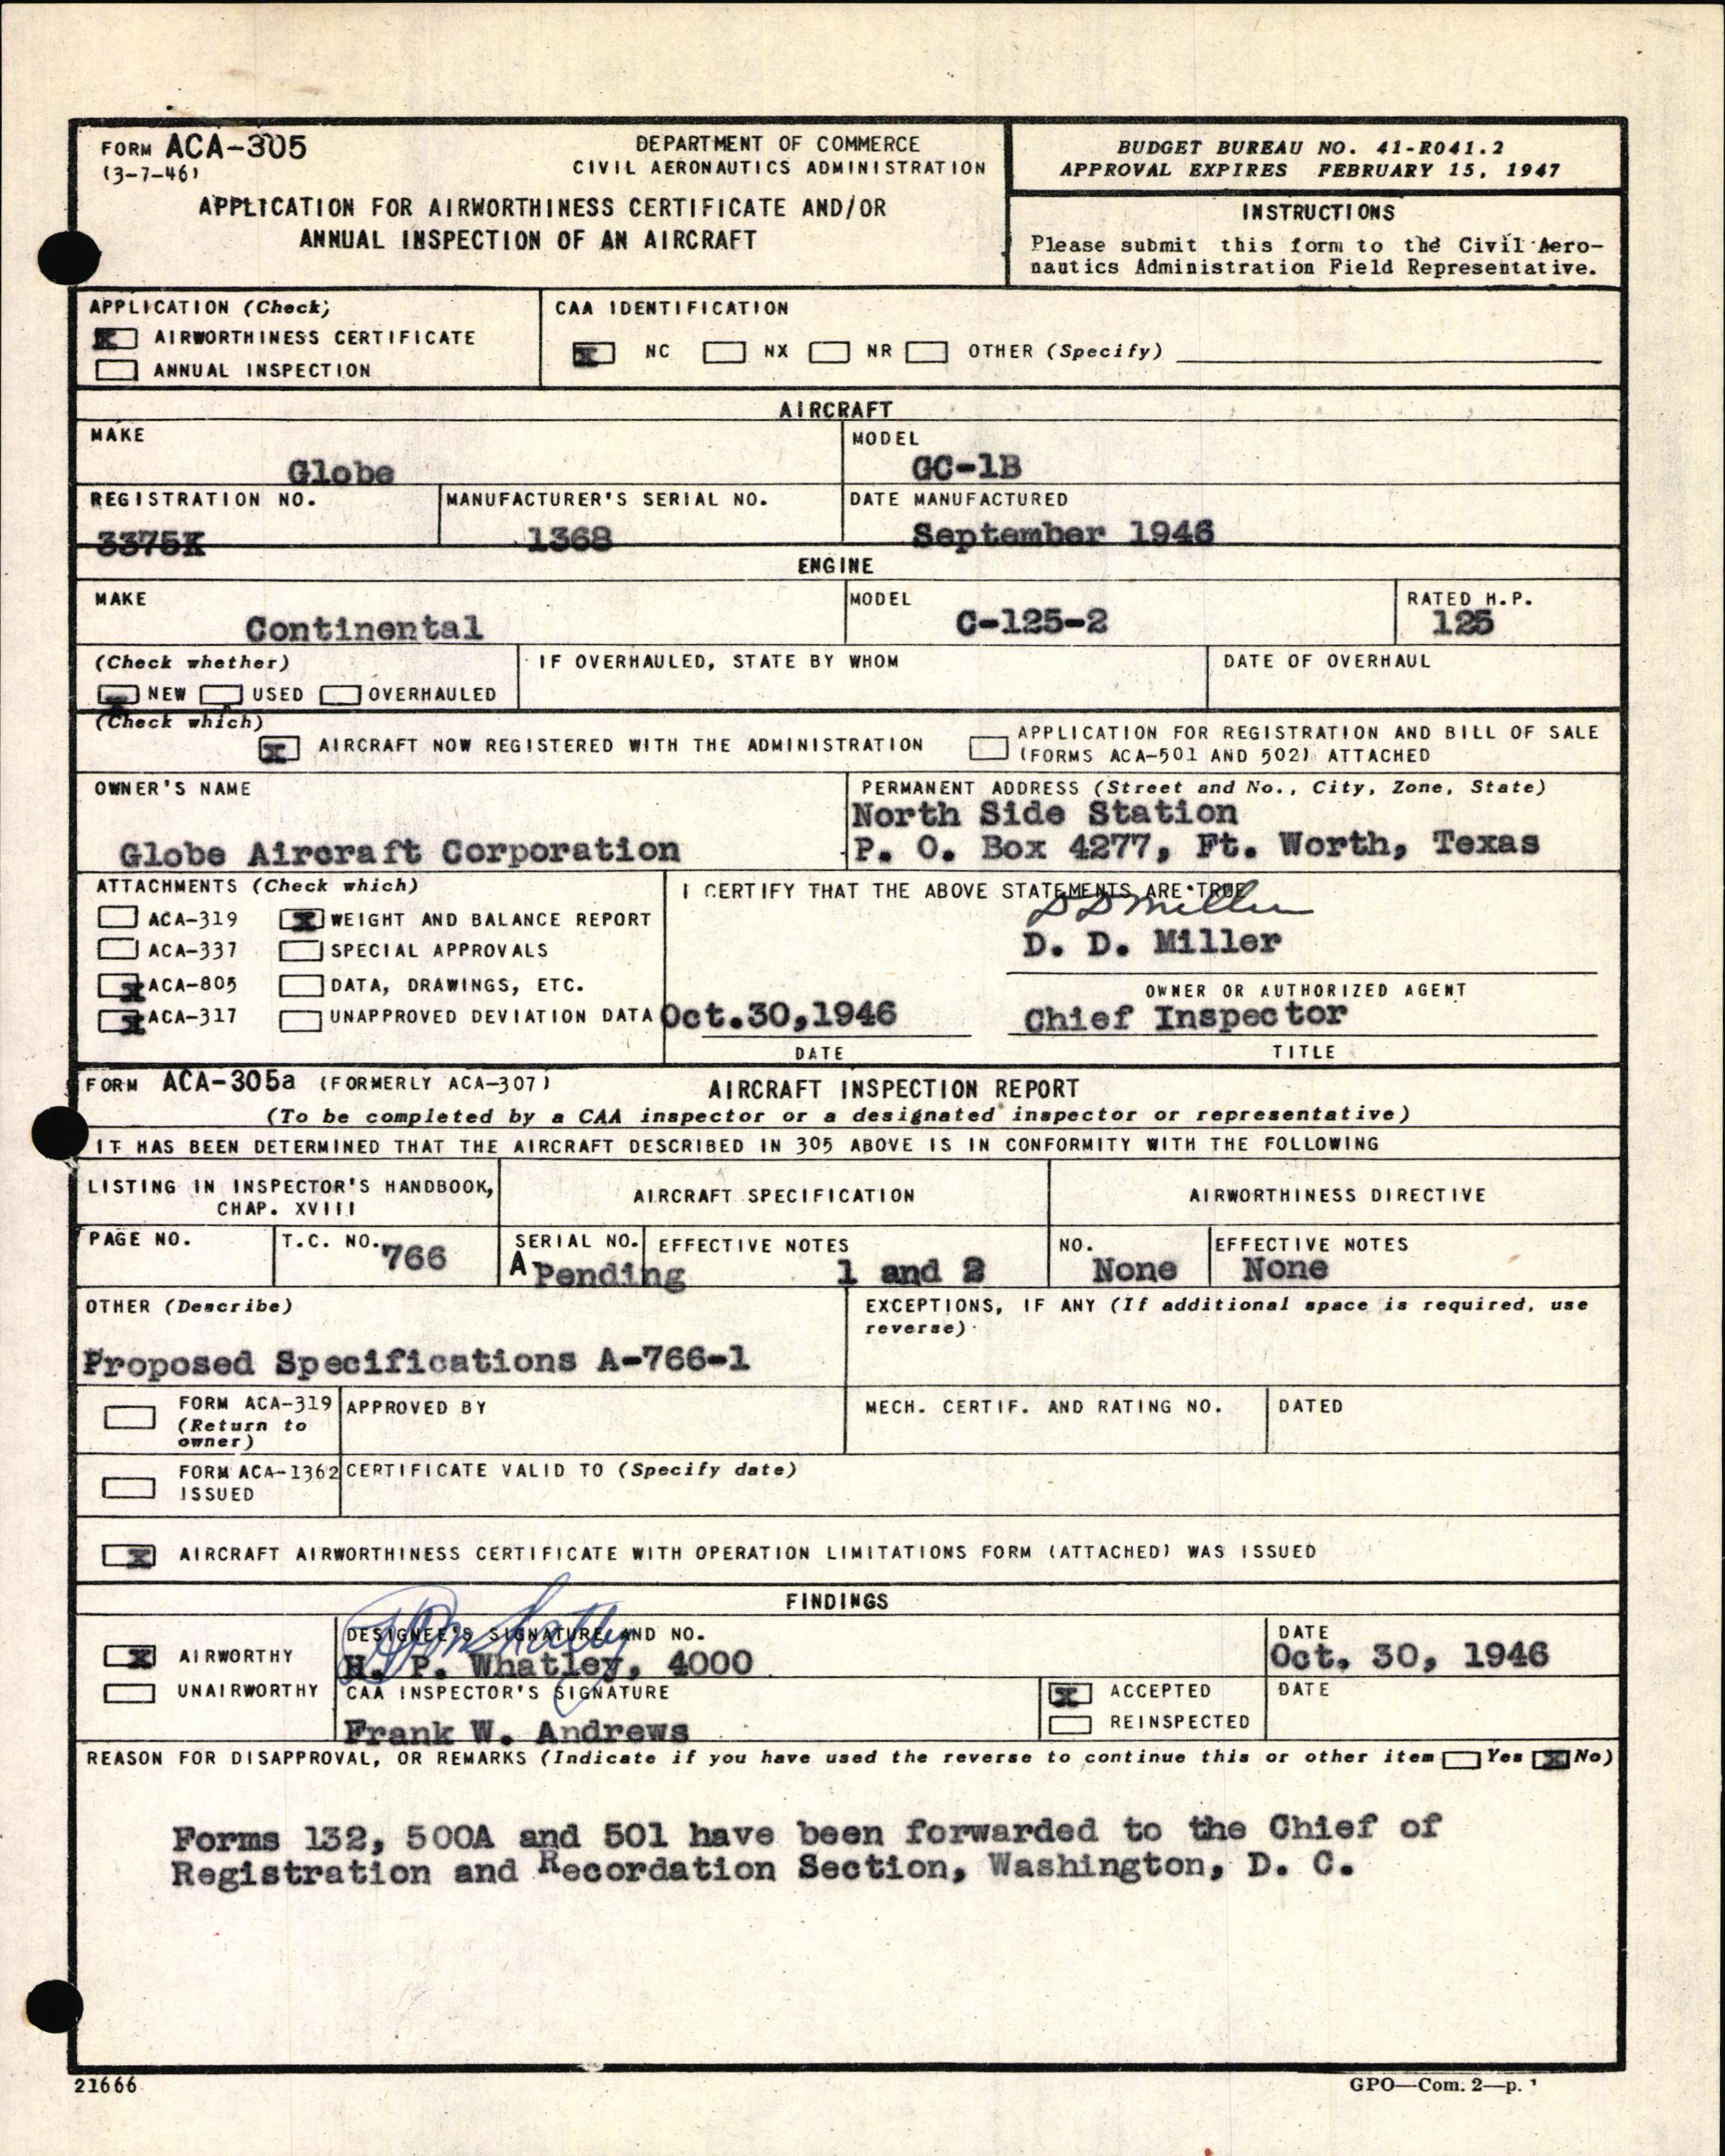 FORM ACA-305
(3-7-46)
DEPARTMENT OF COMMERCE
CIVIL AERONAUTICS ADMINISTRATION
APPLICATION FOR AIRWORTHINESS CERTIFICATE AND/OR
ANNUAL INSPECTION OF AN AIRCRAFT
BUDGET BUREAU NO. 41-R041.2
APPROVAL EXPIRES FEBRUARY 15, 1947
INSTRUCTIONS
Please submit this form to the Civil Aero-
nautics Administration Field Representative.
APPLICATION (Check)
X AIRWORTHINESS CERTIFICATE
ANNUAL INSPECTION
CAA IDENTIFICATION
X NC NX NR OTHER (Specify)
AIRCRAFT
MAKE
Globe
MODEL
GC-1B
REGISTRATION NO.
3375K
MANUFACTURER'S SERIAL NO.
1368
DATE MANUFACTURED
September 1946
ENGINE
MAKE
Continental
MODEL
C-125-2
RATED H.P.
125
(Check whether)
NEW USED OVERHAULED
IF OVERHAULED, STATE BY WHOM
DATE OF OVERHAUL
(Check which)
X AIRCRAFT NOW REGISTERED WITH THE ADMINISTRATION
APPLICATION FOR REGISTRATION AND BILL OF SALE
(FORMS ACA-501 AND 502) ATTACHED
OWNER'S NAME
Globe Aircraft Corporation
PERMANENT ADDRESS (Street and No., City, Zone, State)
North Side Station
P. O. Box 4277, Ft. Worth, Texas
ATTACHMENTS (Check which)
ACA-319 X WEIGHT AND BALANCE REPORT
ACA-337 SPECIAL APPROVALS
X ACA-805 DATA, DRAWINGS, ETC.
X ACA-317 UNAPPROVED DEVIATION DATA
I CERTIFY THAT THE ABOVE STATEMENTS ARE TRUE
D D Miller
D. D. Miller
OWNER OR AUTHORIZED AGENT
Oct.30,1946
DATE
Chief Inspector
TITLE
FORM ACA-305a (FORMERLY ACA-307)
AIRCRAFT INSPECTION REPORT
(To be completed by a CAA inspector or a designated inspector or representative)
IT HAS BEEN DETERMINED THAT THE AIRCRAFT DESCRIBED IN 305 ABOVE IS IN CONFORMITY WITH THE FOLLOWING
LISTING IN INSPECTOR'S HANDBOOK,
CHAP. XVIII
AIRCRAFT SPECIFICATION
AIRWORTHINESS DIRECTIVE
PAGE NO.
T.C. NO.
766
SERIAL NO.
A Pending
EFFECTIVE NOTES
1 and 2
NO.
None
EFFECTIVE NOTES
None
OTHER (Describe)
Proposed Specifications A-766-1
EXCEPTIONS, IF ANY (If additional space is required, use
reverse)
FORM ACA-319
(Return to
owner)
APPROVED BY
MECH. CERTIF. AND RATING NO.
DATED
FORM ACA-1362
ISSUED
CERTIFICATE VALID TO (Specify date)
X AIRCRAFT AIRWORTHINESS CERTIFICATE WITH OPERATION LIMITATIONS FORM (ATTACHED) WAS ISSUED
FINDINGS
X AIRWORTHY
UNAIRWORTHY
DESIGNEE'S SIGNATURE AND NO.
H P Whatley
H. P. Whatley, 4000
DATE
Oct. 30, 1946
CAA INSPECTOR'S SIGNATURE
Frank W. Andrews
X ACCEPTED
REINSPECTED
DATE
REASON FOR DISAPPROVAL, OR REMARKS (Indicate if you have used the reverse to continue this or other item Yes X No)
Forms 132, 500A and 501 have been forwarded to the Chief of
Registration and Recordation Section, Washington, D. C.
21666
GPO—Com. 2—p. 1